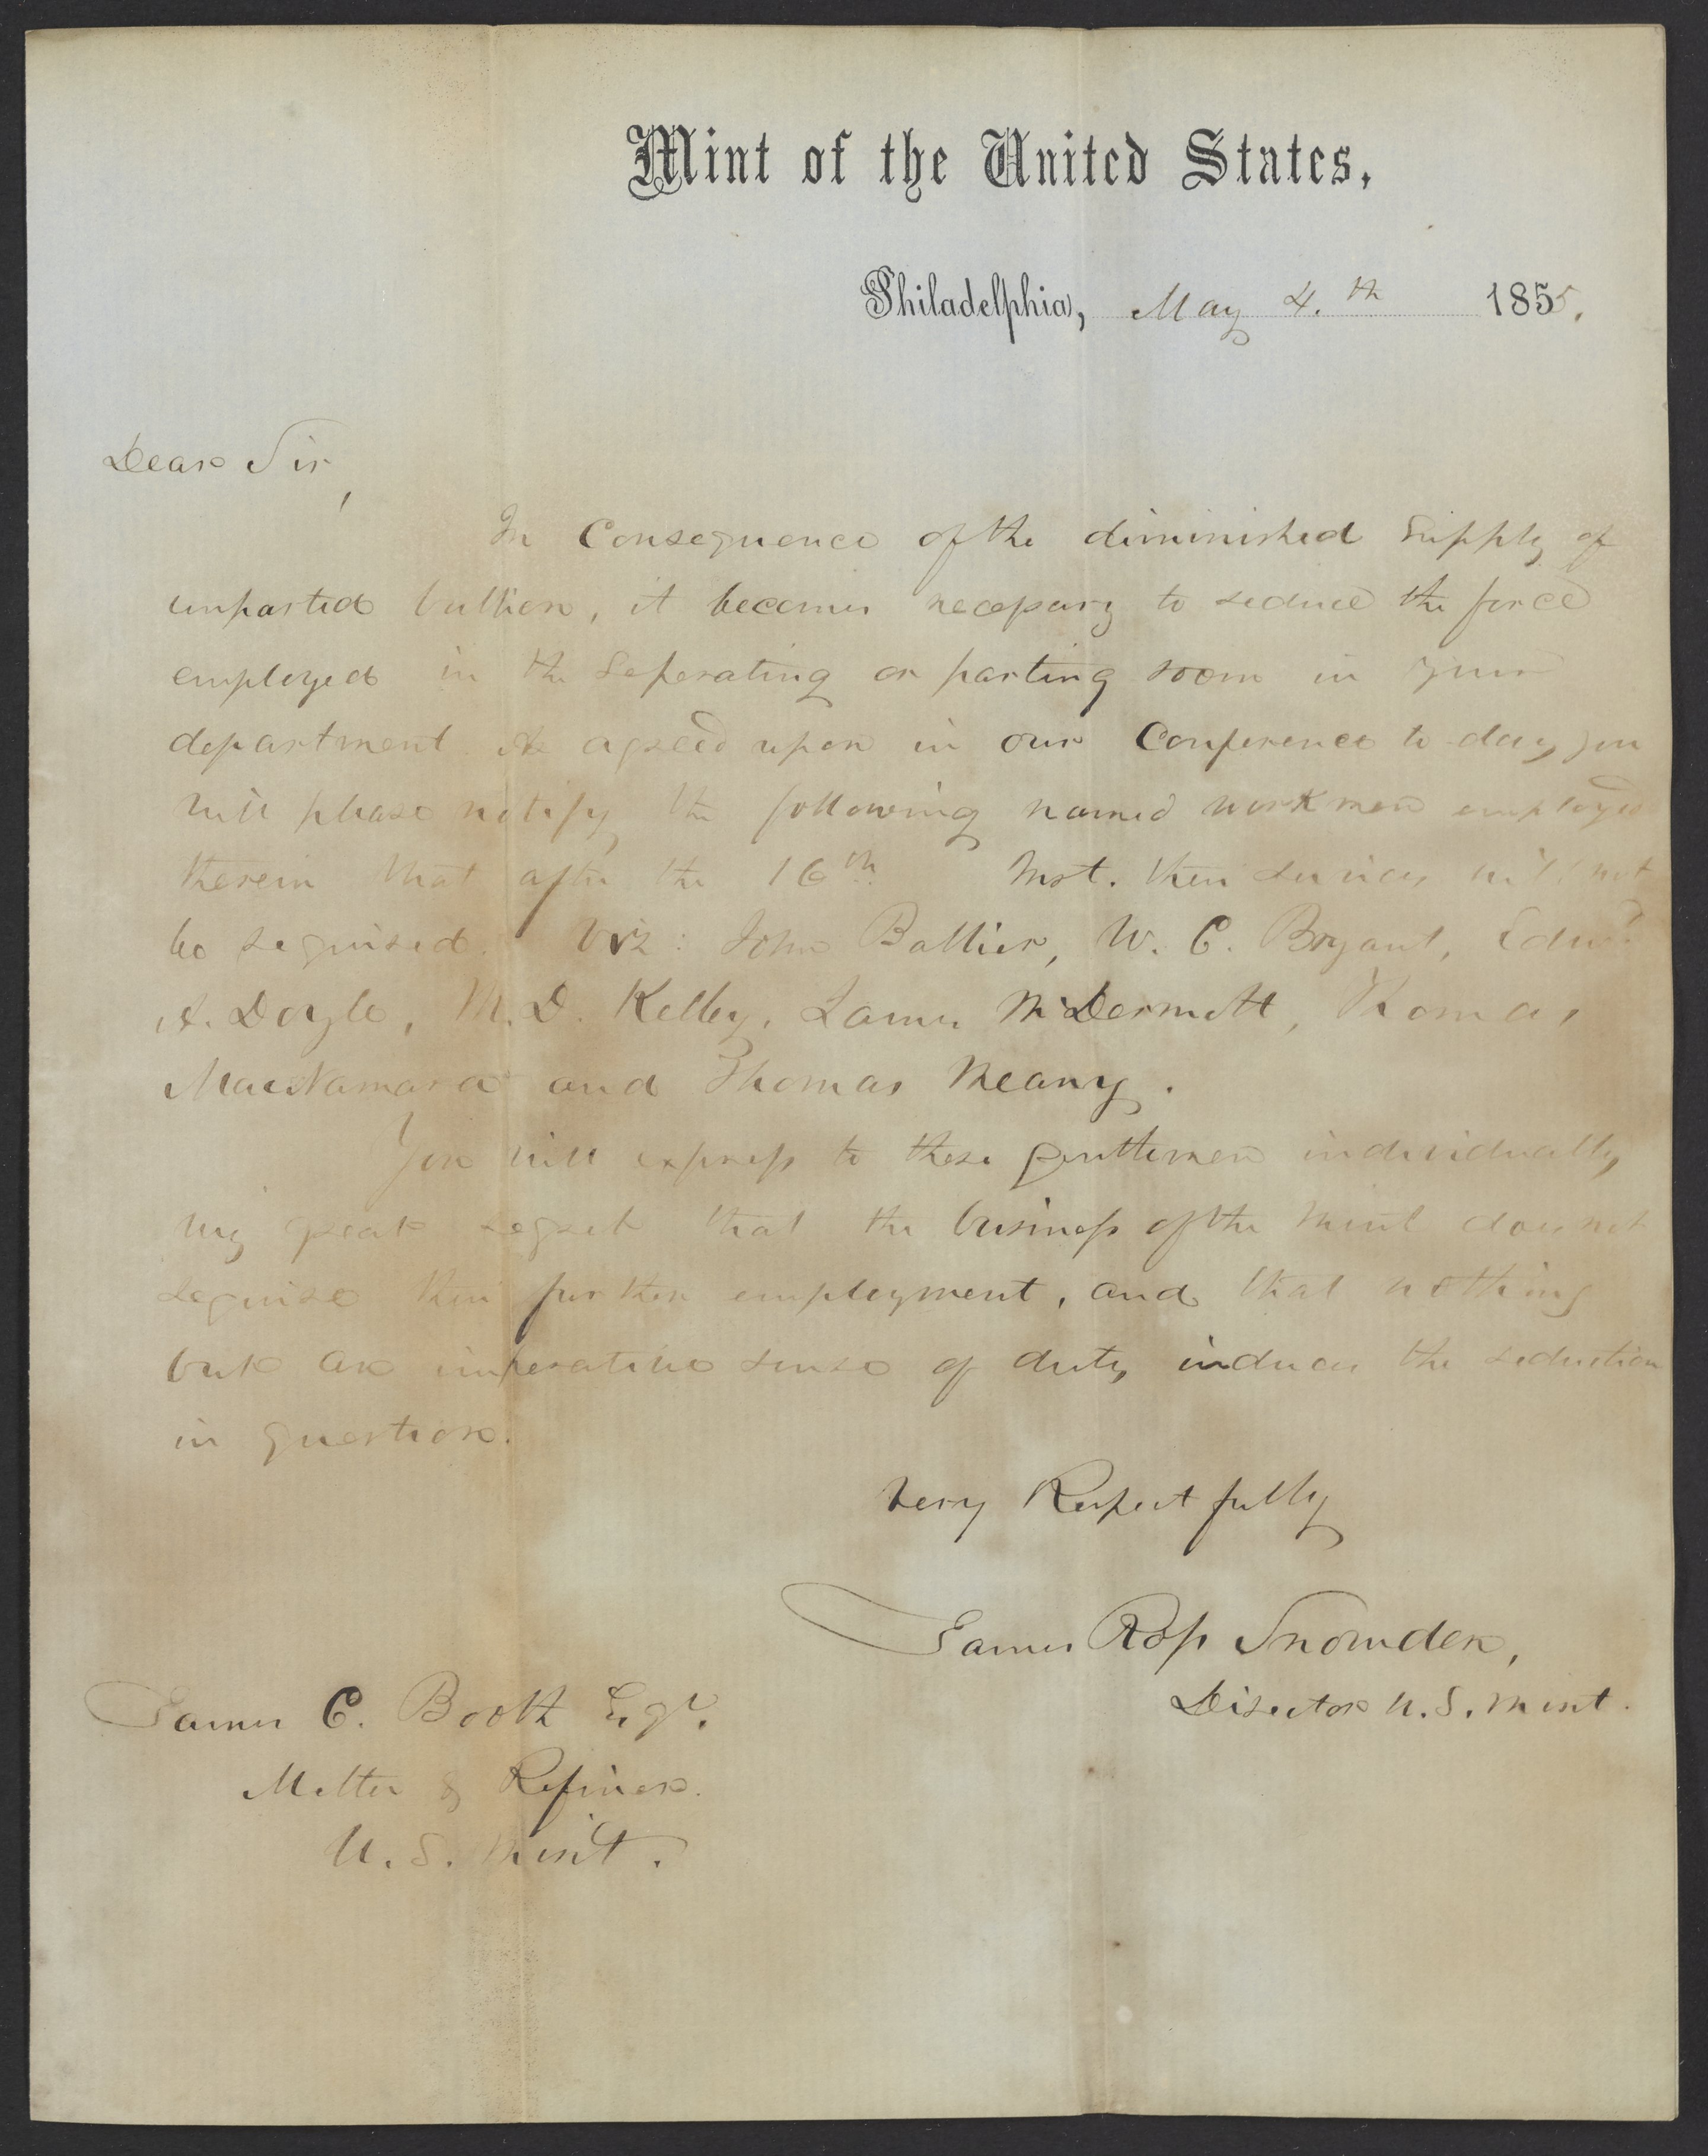 Mint of the United States,
Philadelphia, May 4.th 1855.
Dear Sir,
In Consequence of the diminished Supply of
unparted bullion, it becomes necessary to reduce the force
employed in the Seperating or parting room in your
department As agreed upon in our Conference to-day, you
will please notify the following named workmen employed
therein that after the 16th Inst. their services will not
be required. Viz: John Ballier, W. C. Bryant, Edwd
A. Doyle, M. D. Kelley, James McDermott, Thomas
MacNamara and Thomas Meany.
You will express to these gentlemen individually,
my great regret that the business of the Mint does not
require their further employment, and that nothing
but an imperative sense of duty, induces the reduction
in question.
Very Respectfully
James Ross Snowden,
Director U.S. Mint.
James C. Booth Esqr.
Melter & Refiner.
U.S. Mint.